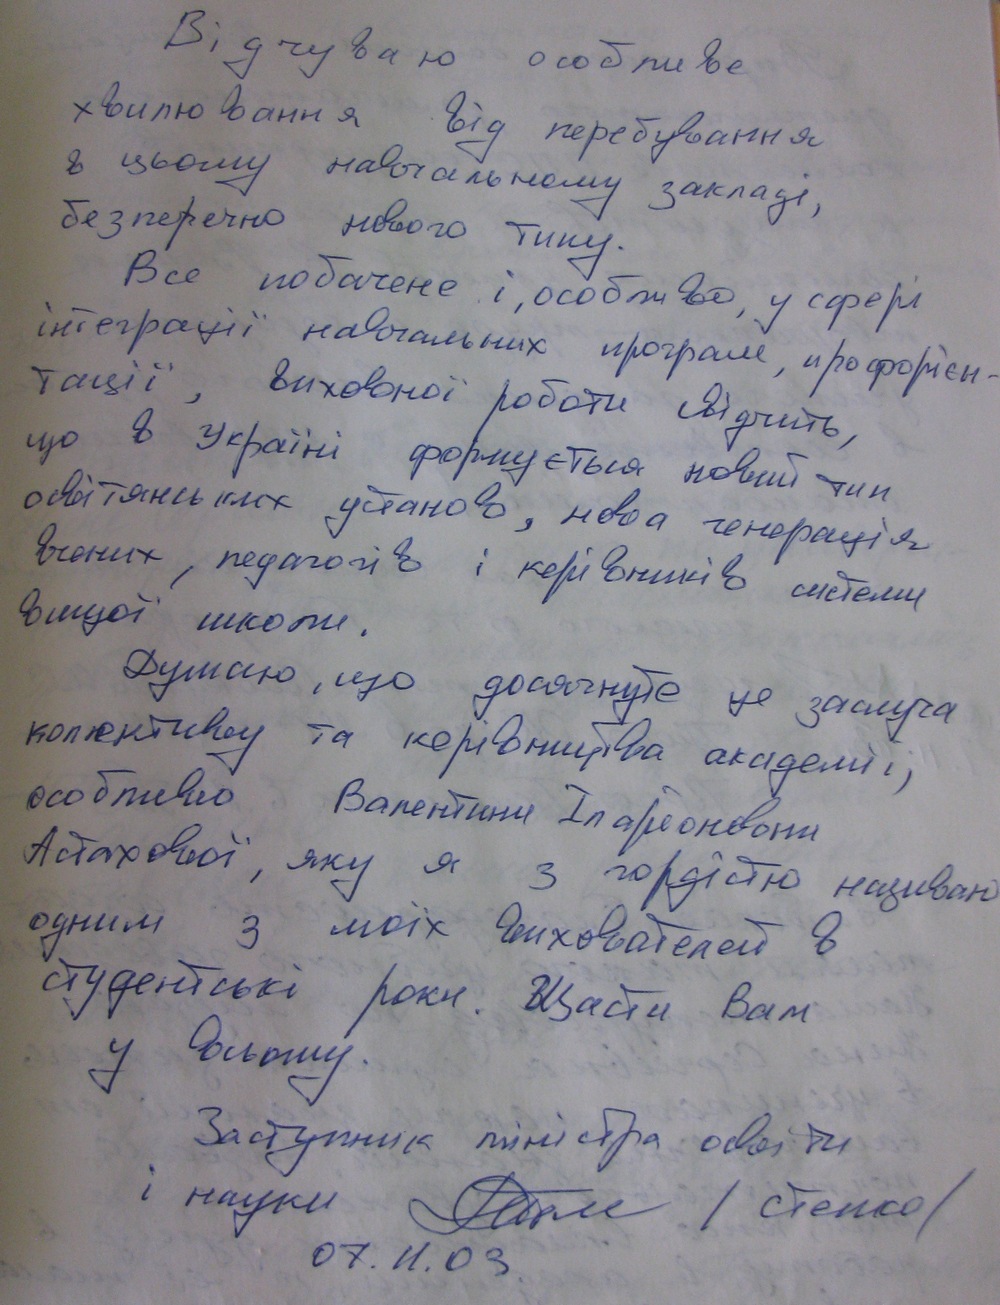 Відчуваю особливе
хвилювання від перебування
в цьому навчальному закладі,
безперечно нового типу.
Все побачене і, особливо, у сфері
інтеграції навчальних програм, профорієн-
тації, виховної роботи свідчить,
що в Україні формується новий тип
освітянських установ, нова генерація
вчених, педагогів і керівників системи
вищої школи.
Думаю, що досягнуте це заслуга
колективу та керівництва академії,
особливо Валентини Іларіонівни
Астахової, яку я з гордістю називаю
одним з моїх вихователей в
студентські роки. Щасти Вам
у всьому.
Заступник міністра освіти
і науки / Степко /
07.11.03